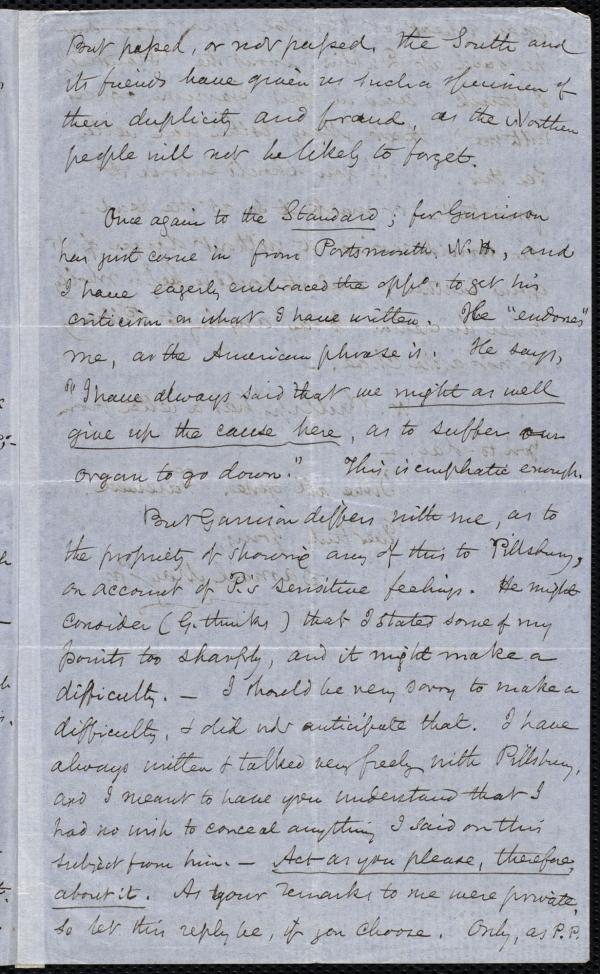 But passed, or not passed, the South and
its friends have given us such a specimen of
their duplicity and fraud, as the Northern
people will not be likely to forget.
Once again to the Standard; for Garrison
has just come in from Portsmouth, N.H., and
I have eagerly embraced the oppy. to get his
criticism on what I have written. He "endorses"
me, as the American phrase is. He says,
"I have always said that we might as well
give up the cause here, as to suffer our
organ to go down." This is emphatic enough.
But Garrison differs with me, as to
the propriety of showing any of this to Pillsbury,
on account of P.'s sensitive feelings. He might
consider (G. thinks) that I stated some of my
points too sharply, and it might make a
difficulty. — I should be very sorry to make a
difficulty, & did not anticipate that. I have
always written & talked very freely with Pillsbury,
and I meant to have you understand that I
had no wish to conceal anything I said on this
subject from him. — Act as you please, therefore,
about it. As your remarks to me were private,
so let this reply be, if you choose. Only, as P.P.